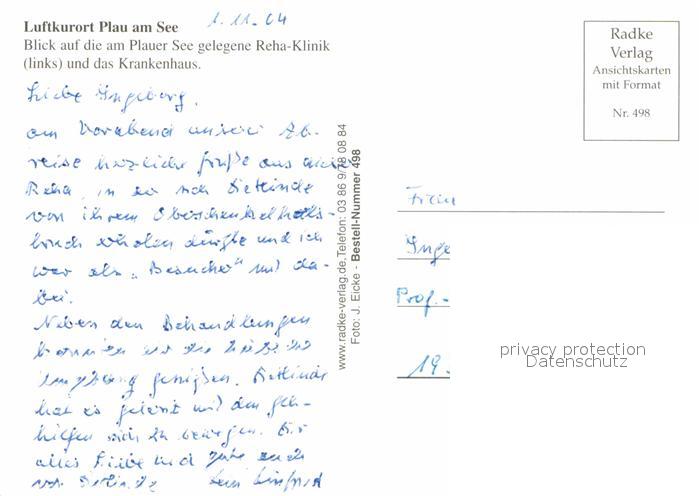 1.11.04
Luftkurort Plau am See
Blick auf die am Plauer See gelegene Reha-Klinik
(links) und das Krankenhaus.
Liebe Ingeborg,
am Vorabend unserer Ab-
reise herzliche Grüße aus dieser
Reha, in der sich Dietlinde
von ihrem Oberschenkelhals-
bruch erholen dürfte und ich
war als „Besucher" mit da-
bei.
Neben den Behandlungen
konnten wir die
Umgebung genießen. Dietlinde
hat es gelernt mit den Geh-
hilfen sich zu bewegen. Dir
alles Liebe und Gute auch
von Dietlinde Dein
www.radke-verlag.de, Telefon: 03 86 9/78 08 84
Foto: J. Eicke - Bestell-Nummer 498
Radke
Verlag
Ansichtskarten
mit Format
Nr. 498
Frau
Inge
Prof.-
19.
privacy protection
Datenschutz